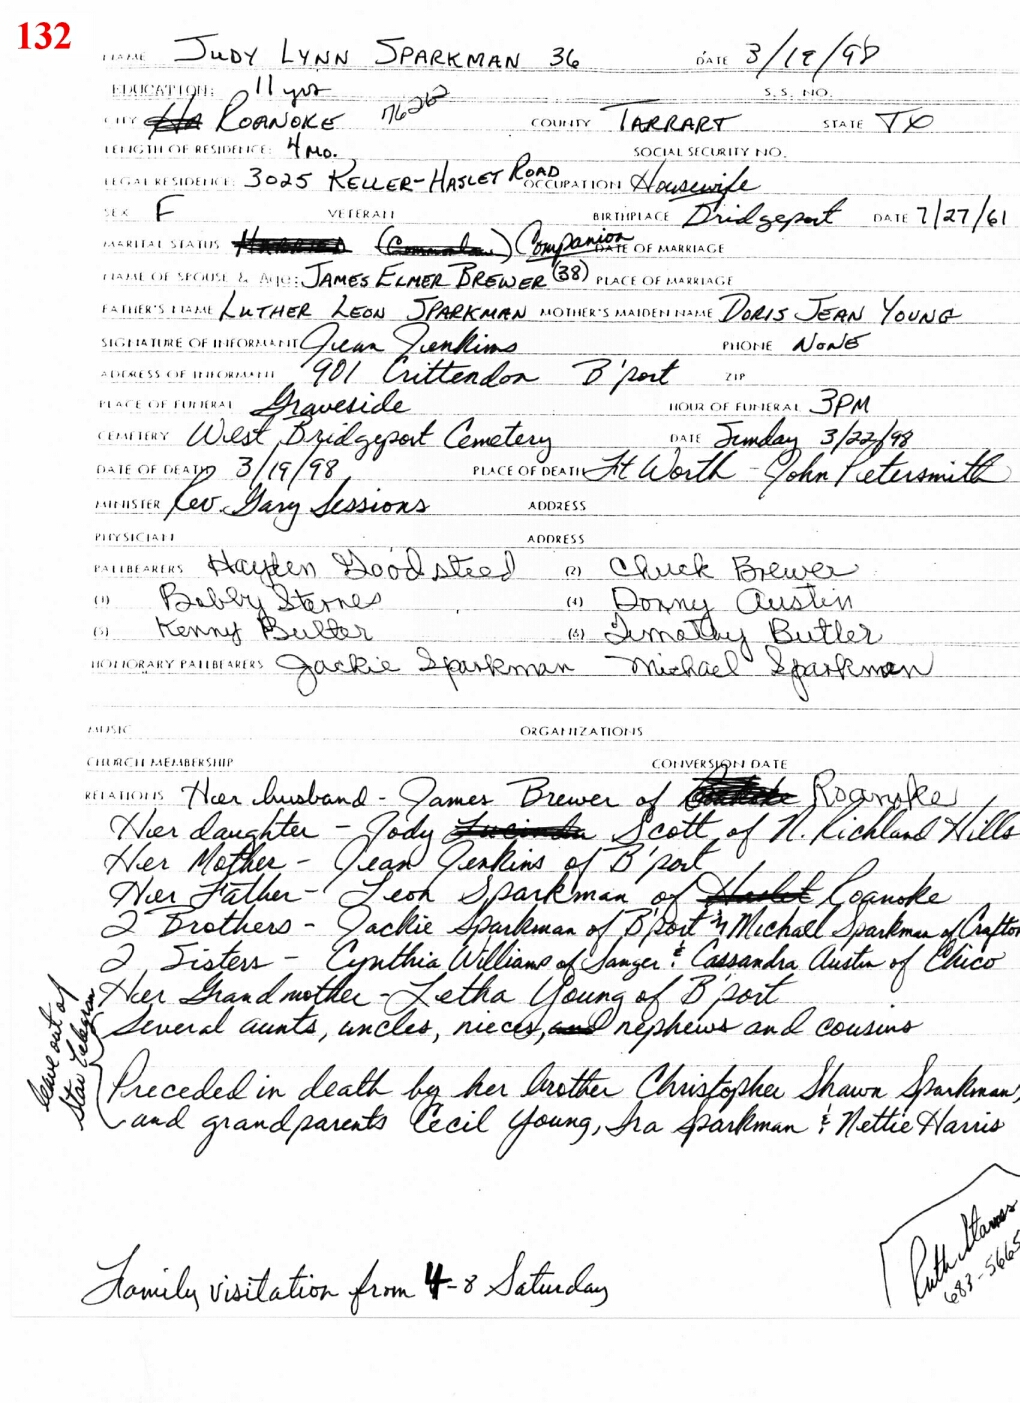 132
NAME JUDY LYNN SPARKMAN 36 DATE 3/19/98
EDUCATION: 11 yrs S.S. NO.
CITY ROANOKE 76262 COUNTY TARRART STATE TX
LENGTH OF RESIDENCE: 4 MO. SOCIAL SECURITY NO.
LEGAL RESIDENCE: 3025 KELLER-HASLET ROAD OCCUPATION Housewife
SEX F VETERAN BIRTHPLACE Bridgeport DATE 7/27/61
MARITAL STATUS MARRIED (Commonlaw) Companion DATE OF MARRIAGE
NAME OF SPOUSE & Age: JAMES ELMER BREWER (38) PLACE OF MARRIAGE
FATHER'S NAME LUTHER LEON SPARKMAN MOTHER'S MAIDEN NAME DORIS JEAN YOUNG
SIGNATURE OF INFORMANT Jean Jenkins PHONE NONE
ADDRESS OF INFORMANT 901 Crittendon B'port ZIP
PLACE OF FUNERAL Graveside HOUR OF FUNERAL 3PM
CEMETERY West Bridgeport Cemetery DATE Sunday 3/22/98
DATE OF DEATH 3/19/98 PLACE OF DEATH Ft Worth - John Petersmith
MINISTER Rev. Gary Sessions ADDRESS
PHYSICIAN ADDRESS
PALLBEARERS Hayden Goodsteed (2) Chuck Brewer
(3) Bobby Starnes (4) Donny Austin
(5) Kenny Butler (6) Timothy Butler
HONORARY PALLBEARERS Jackie Sparkman Michael Sparkman
MUSIC ORGANIZATIONS
CHURCH MEMBERSHIP CONVERSION DATE
RELATIONS Her husband - James Brewer of Roanoke
Her daughter - Jody Lucinda Scott of N. Richland Hills
Her Mother - Jean Jenkins of B'port
Her Father - Leon Sparkman of Haslet Roanoke
2 Brothers - Jackie Sparkman of B'port & Michael Sparkman of Crafton
2 Sisters - Cynthia Williams of Sanger & Cassandra Austin of Chico
Her Grandmother - Letha Young of B'port
Several aunts, uncles, nieces, and nephews and cousins
leave out of
Star Telegram
Preceded in death by her brother Christopher Shawn Sparkman,
and grandparents Cecil Young, Ira Sparkman & Nettie Harris
Ruth Starnes
683-5665
Family visitation from 4-8 Saturday